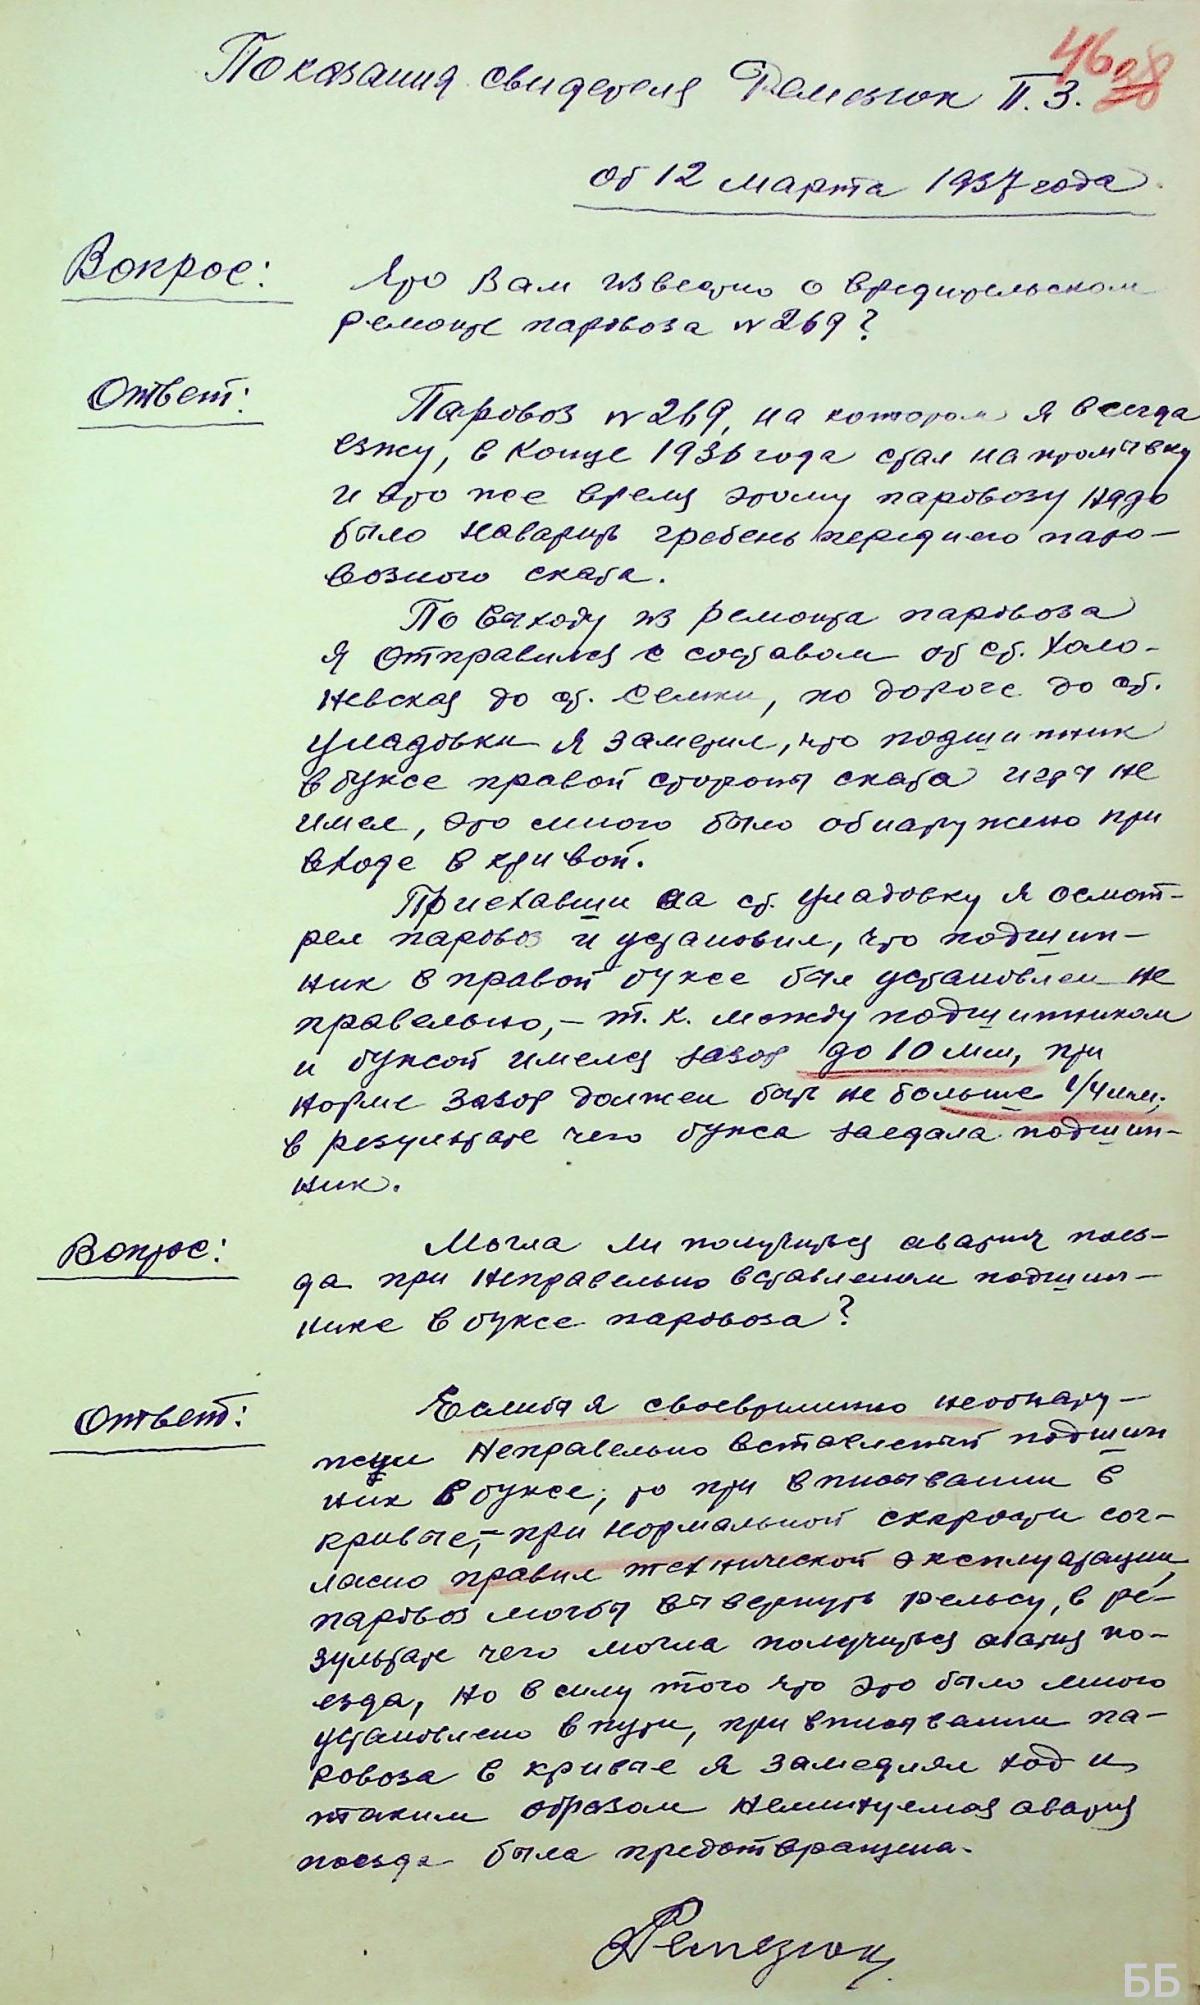 Показания свидетеля Ремезюк П.З.
46
от 12 марта 1937 года
Вопрос: Что Вам известно о вредительском
ремонте паровоза № 269?
Ответ: Паровоз № 269, на котором я всегда
езжу, в конце 1936 года стал на промывку
и в то же время этому паровозу надо
было наварить гребень переднего паро-
возного ската.
По выходу из ремонта паровоза
я отправился с составом от ст. Холо-
невская до ст. Семки, по дороге до ст.
Уладовки я заметил, что подшипник
в буксе правой стороны ската игры не
имел, это мною было обнаружено при
входе в кривой.
Приехавши на ст. Уладовку я осмот-
рел паровоз и установил, что подшип-
ник в правой буксе был установлен не
правельно, – т.к. между подшипником
и буксой имелся зазор до 10 мм, при
норме зазор должен быть не больше 1/4 мм;
в результате чего букса заедала подшип-
ник.
Вопрос: Могла ли получиться авария поез-
да при неправельно вставленом подшип-
нике в буксе паровоза?
Ответ: Если бы я своевременно не обнару-
жил неправельно вставленый подшип
ник в буксе, то при вписывании в
кривые, – при нормальной скорости сог-
ласно правил технической эксплуатации,
паровоз мог бы вывернуть рельсу, в ре-
зультате чего могла получиться авария по-
езда, но в силу того что это было мною
установлено в пути, при вписывании па-
ровоза в кривые я замедлял ход и
таким образом неминуемая авария
поезда была предотвращена.
Ремезюк
ББ